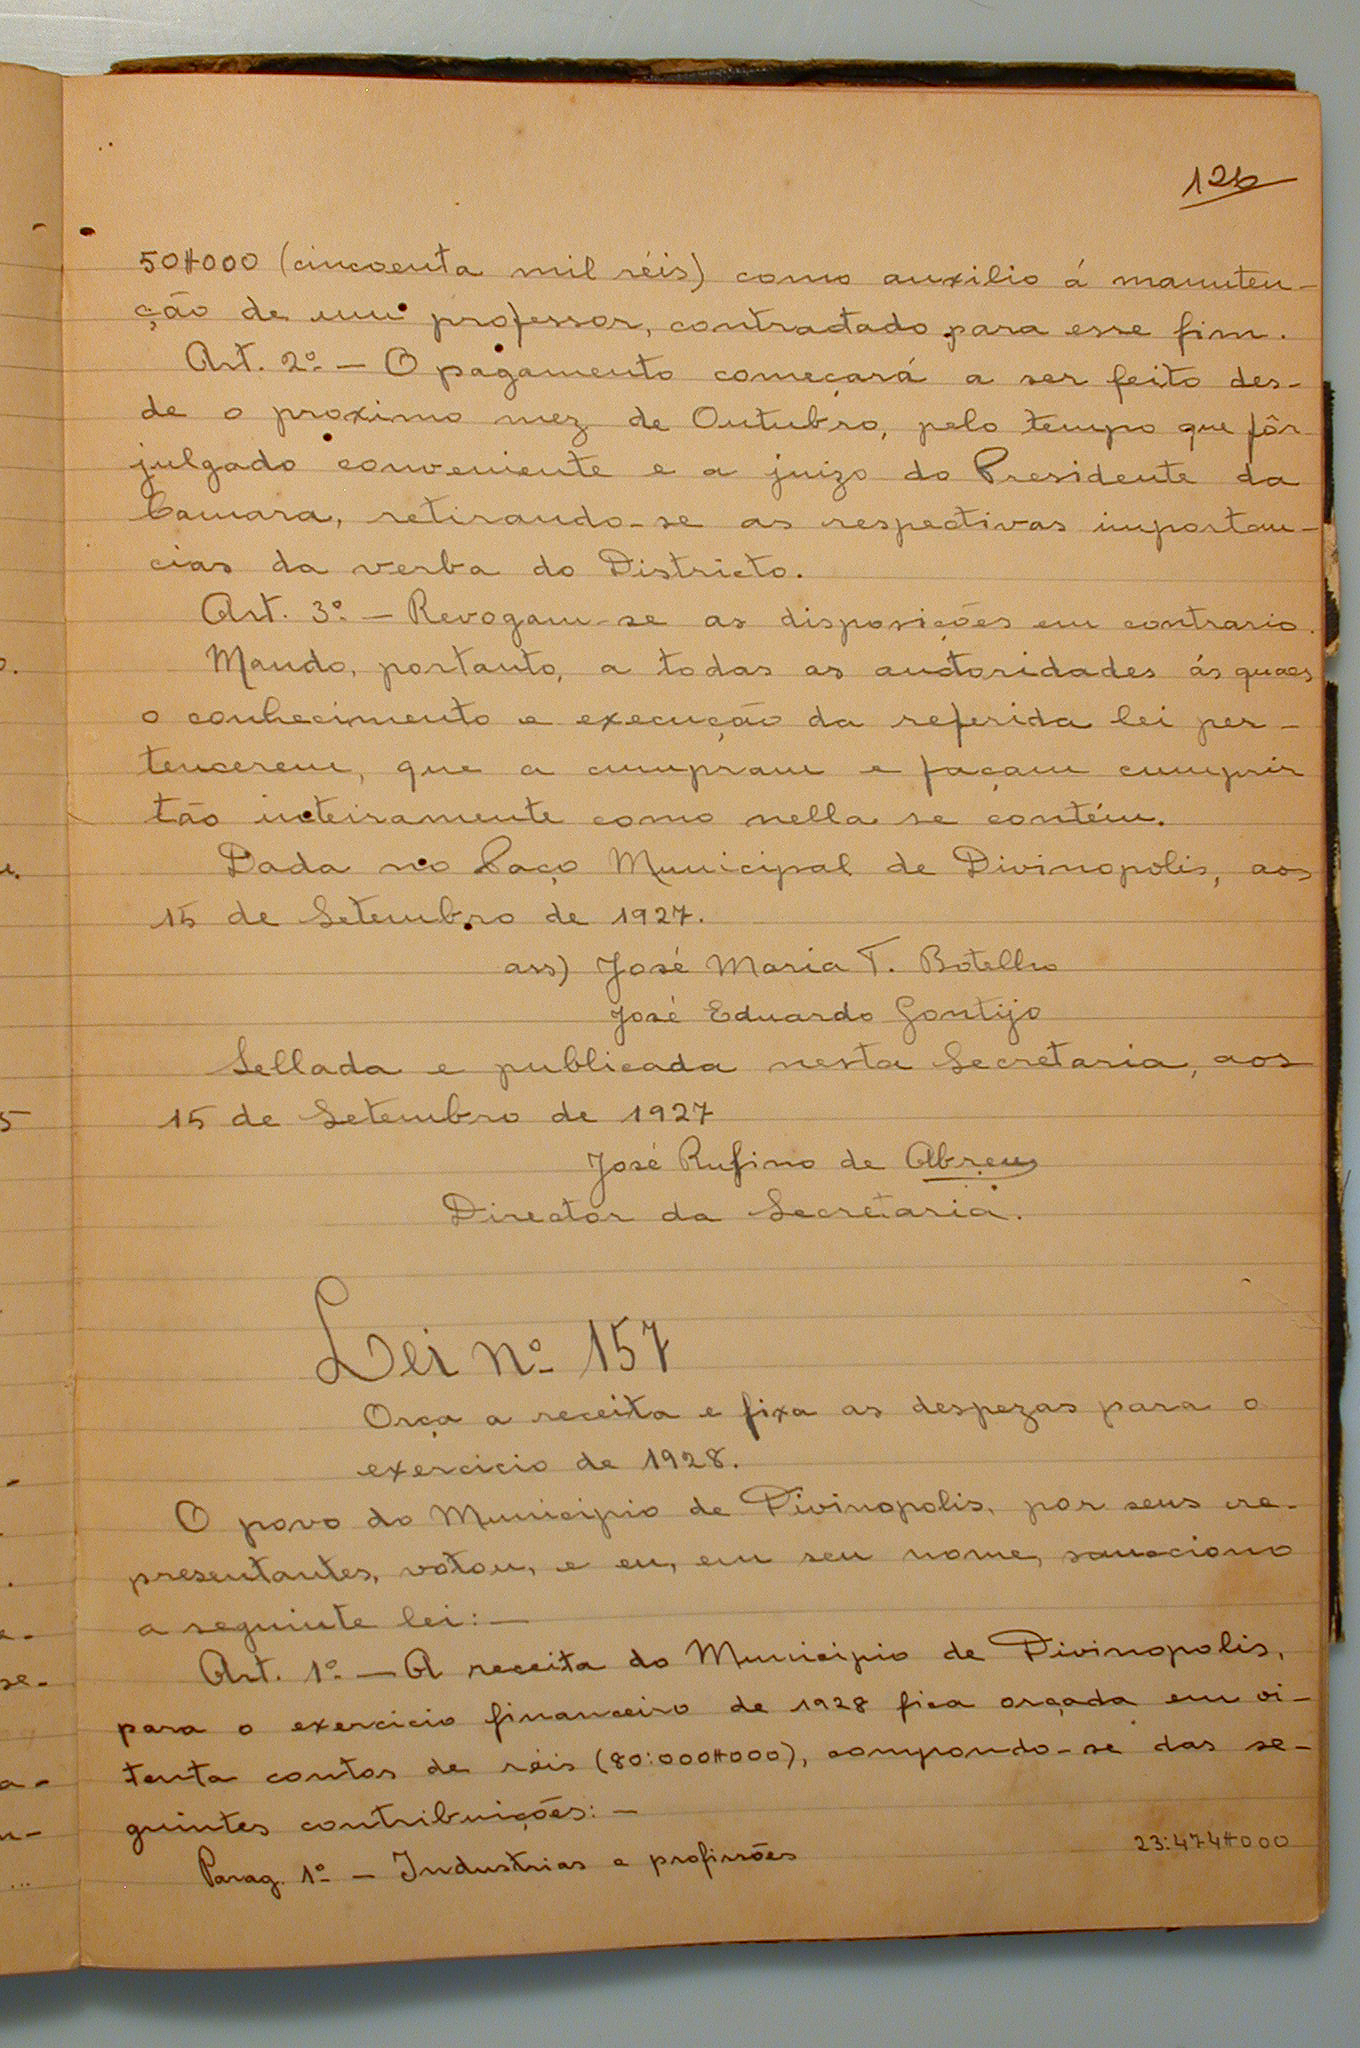 126
50$000 (cincoenta mil réis) como auxilio á manuten-
ção de um professor, contractado para esse fim.
Art. 2º. — O pagamento começará a ser feito des-
de o proximo mez de Outubro, pelo tempo que fôr
julgado conveniente e a juizo do Presidente da
Camara, retirando-se as respectivas importan-
cias da verba do Districto.
Art. 3º. — Revogam-se as disposições em contrario.
Mando, portanto, a todas as auctoridades ás quaes
o conhecimento e execução da referida lei per-
tencerem, que a cumpram e façam cumprir
tão inteiramente como nella se contém.
Dada no Paço Municipal de Divinopolis, aos
15 de Setembro de 1927.
ass) José Maria T. Botelho
José Eduardo Gontijo
Sellada e publicada nesta Secretaria, aos
15 de Setembro de 1927
José Rufino de Abreu
Director da Secretaria.
Lei nº 157
Orça a receita e fixa as despezas para o
exercicio de 1928.
O povo do Municipio de Divinopolis, por seus re-
presentantes, votou, e eu, em seu nome, sancciono
a seguinte lei: —
Art. 1º. — A receita do Municipio de Divinopolis,
para o exercicio financeiro de 1928 fica orçada em oi-
tenta contos de réis (80:000$000), compondo-se das se-
guintes contribuições: —
Parag. 1º — Industrias e profissões 23:474$000